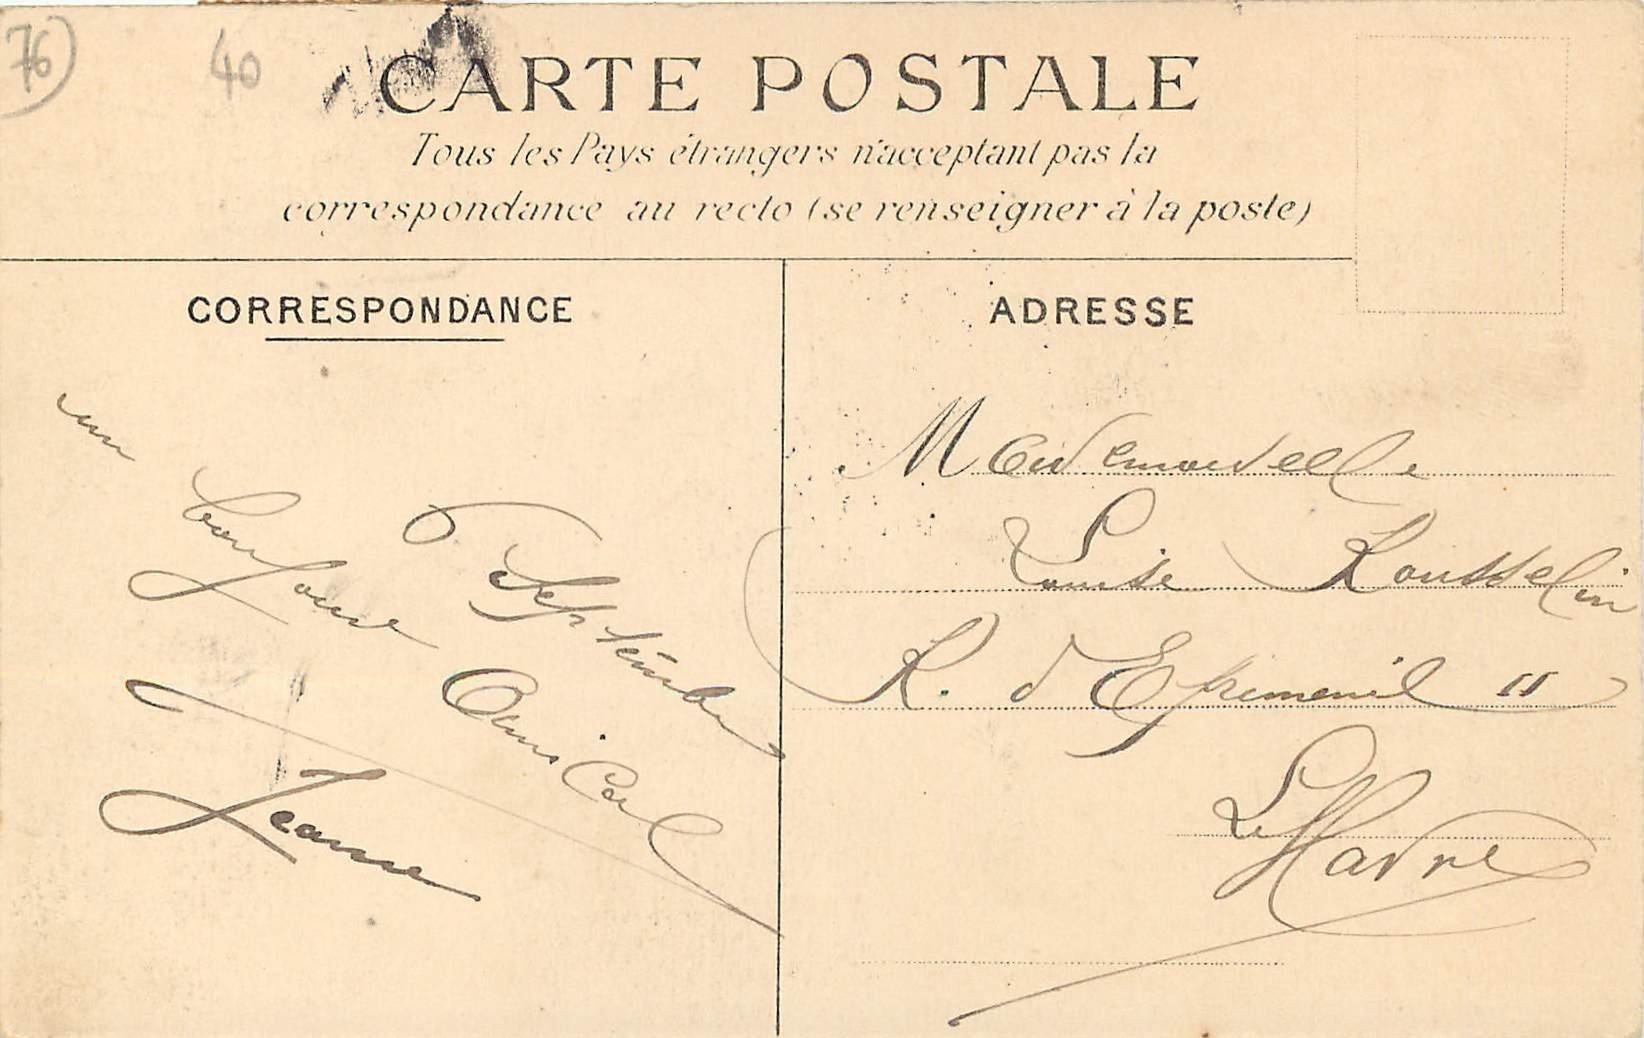 76)
40
CARTE POSTALE
Tous les Pays étrangers n'acceptant pas la
correspondance au recto (se renseigner à la poste)
CORRESPONDANCE
un
bonjour Amical
Septembre
Jeanne
ADRESSE
Mademoiselle
Louise Rousselin
R. d'Epremenil 11
Le Havre